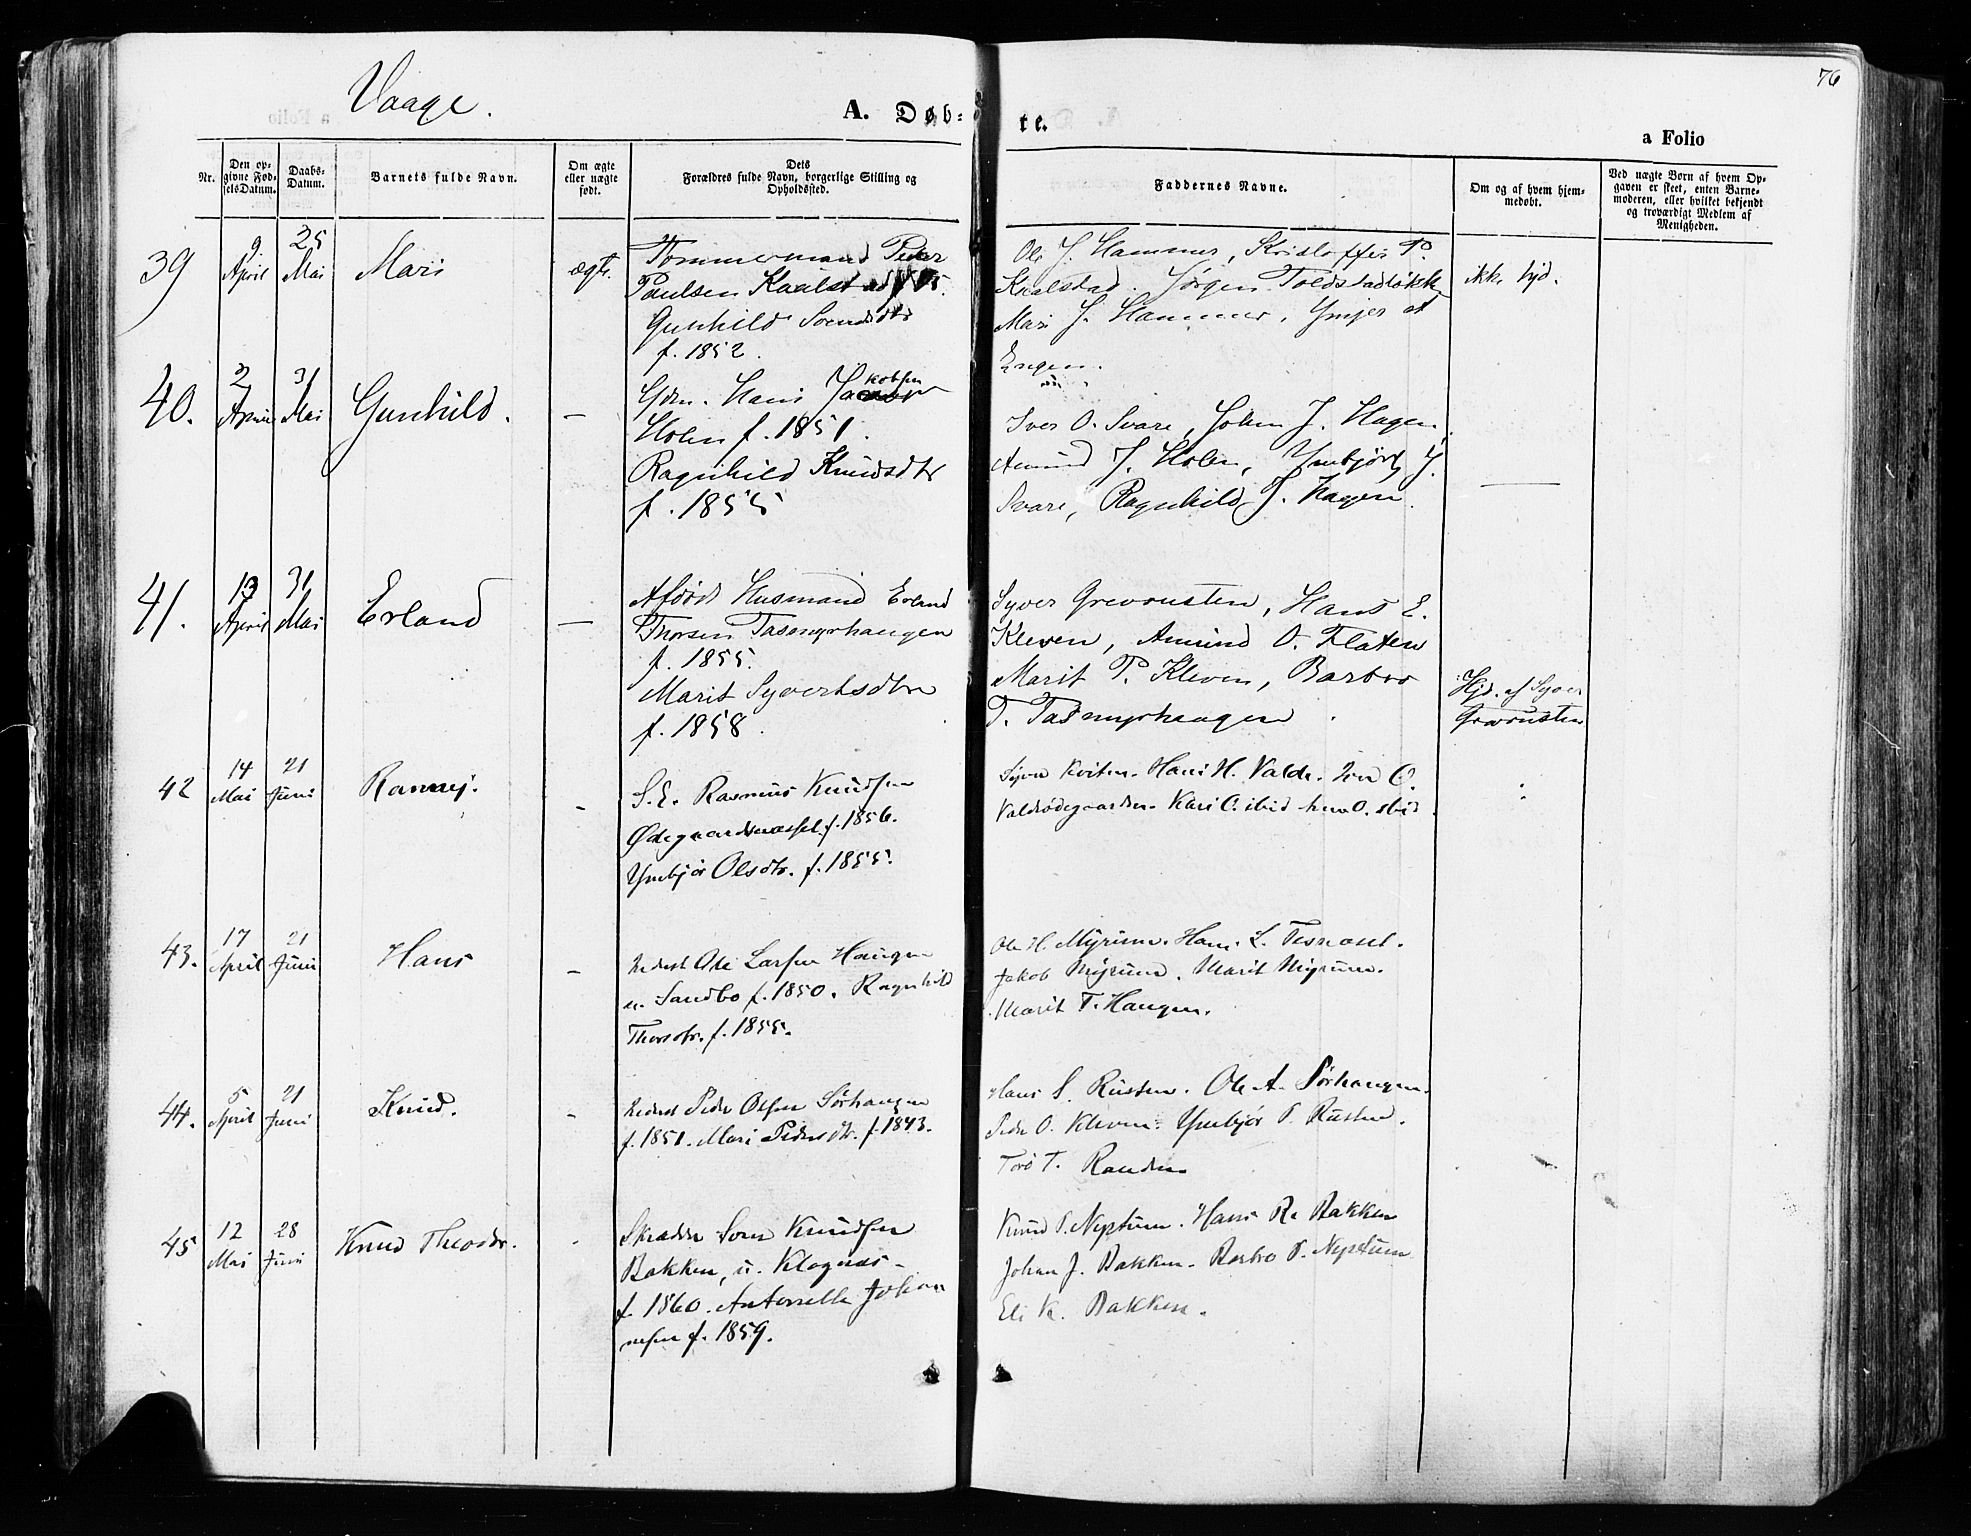 76
Vaage.
A. Døb-
te.
a Folio
Nr.
Den op-
givne Fød-
selsDatum.
Daabs-
Datum.
Barnets fulde Navn.
Om ægte
eller uægte
født.
Dets
Forældres fulde Navn, borgerlige Stilling og
Opholdssted.
Faddernes Navne.
Om og af hvem hjem-
medøbt.
Ved uægte Børn af hvem Op-
gaven er skeet, enten Barne-
moderen, eller hvilket bekjendt
og troværdigt Medlem af
Menigheden.
39
9
April
25
Mai
Mari
ægte
Tømmermand Peder
Paulsen Kaalstad
Gunhild
f. 1852.
Ole J. Hammer, Kristoffer P.
Kaalstad. Jørgen Toldstadløkke
Mari J. Hammer,
Engen.
ikke hjd.
40.
2
April
31
Mai
Gunhild.
—
Gdm. Hans Jakobsen
Holen f. 1851.
Ragnhild Knudsdtr
f. 1855
Iver O. Svare, Johan J. Hagen,
Amund J. Holen, Ymbjørg J.
Svare, Ragnhild J. Hagen.
—
41.
13
April
31
Mai
Erland
—
Afdød Husmand Erland
Thorsen Tasmyrhaugen
f. 1855.
Marit Syvertsdtr
f. 1858.
Syver Grevrusten, Hans E.
Kleven, Amund O. Flaten
Marit P. Kleven, Barbro
T. Tasmyrhaugen
Hjd. af Syver
Grevrusten
42
14
Mai
21
Juni
Rannej.
-
S. E. Rasmus Knudsen
Ødegaards f. 1856.
Ymbjør Olsdtr. f. 1855.
Syver Kviten. Hans H. Valde. Iver O.
Valdeødegaarden. Kari O. ibid O. ibid.
43.
17
April
21
Juni
Hans
-
Inderst Ole Larsen Haugen
u. Sandbo f. 1850. Ragnhild
Thorsdtr. f. 1855.
Ole H. Myrum. Hans L.
Jakob Myrum. Marit Myrum.
Marit T. Haugen.
44.
5
April
21
Juni
Knud.
-
Inderst Peder Olsen Sørhaugen
f. 1851. Mari Pedersdtr. f. 1843.
Hans S. Rusten. Ole A. Sørhaugen.
Peder O. Kleven. Ymbjør P. Rusten.
Torø T. Randen
45
12
Mai
28
Juni
Knud Theodor.
-
Skrædder Knudsen
Bakken, u. Klognæs
f. 1860. Antonette Johan
nesen f. 1859.
Knud P. Nyrtum. Hans R. Bakken
Johan J. Bakken. Barbro P. Nyrtum
Eli K. Bakken.